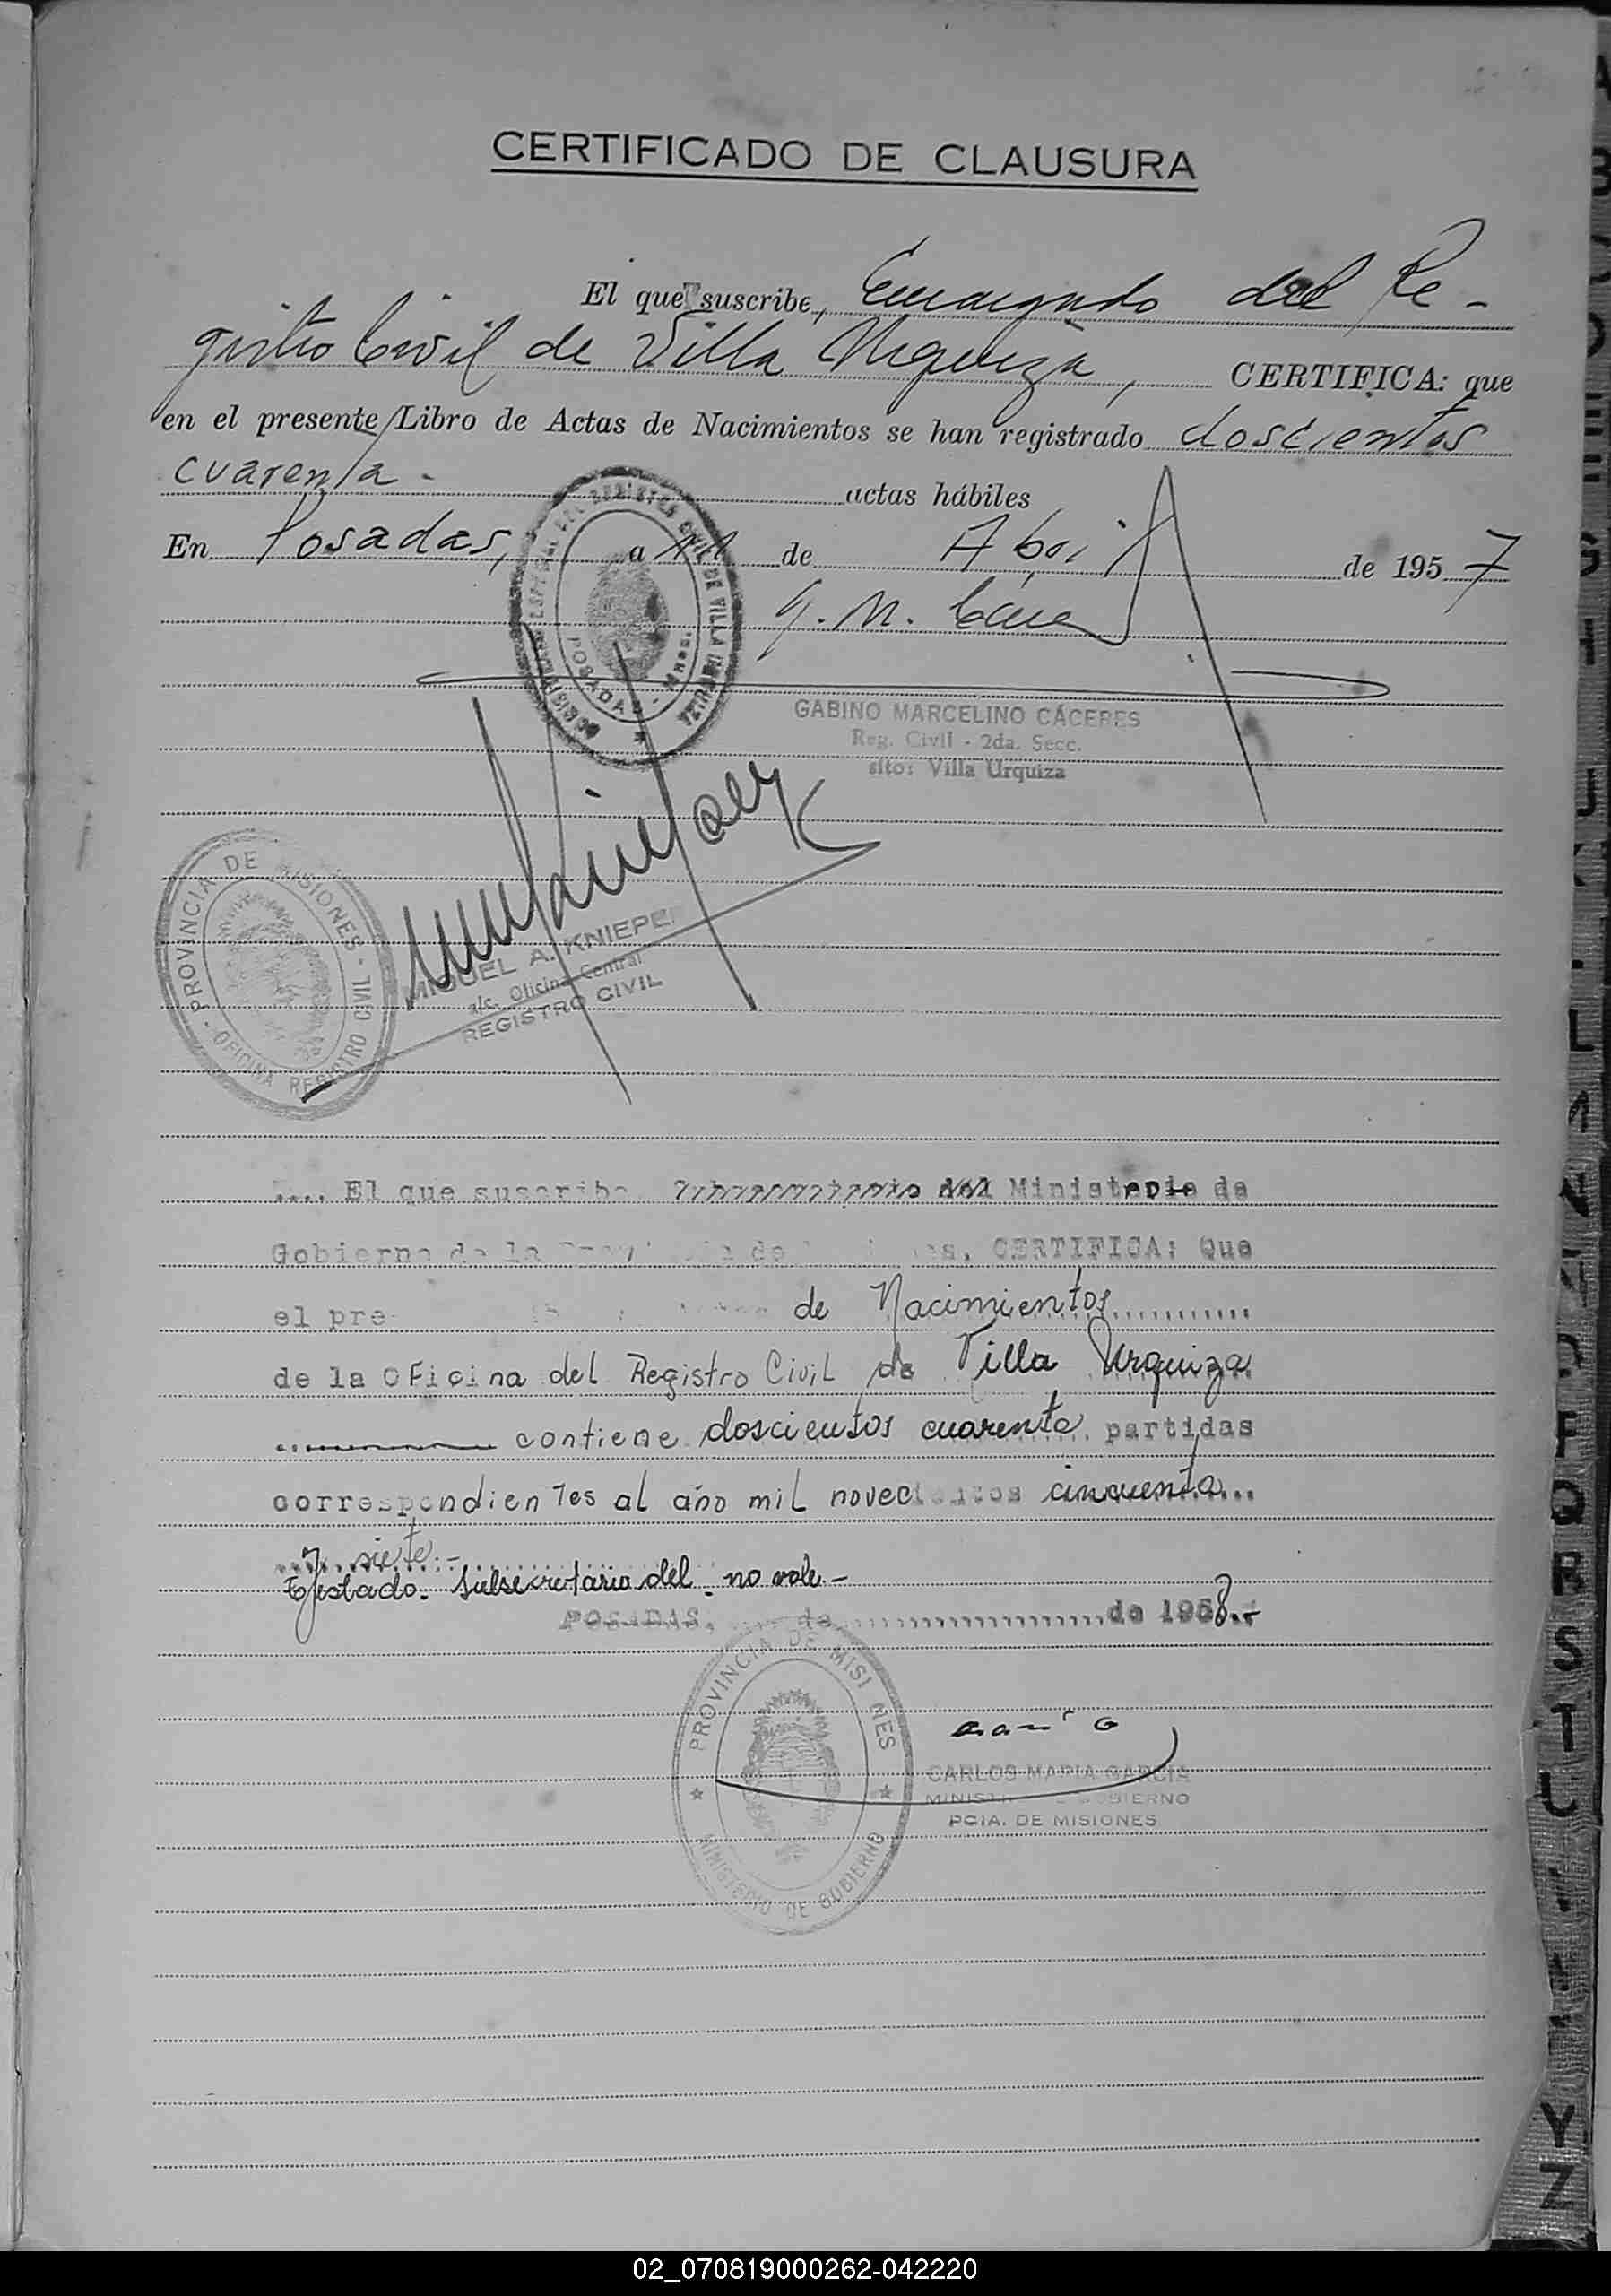 CERTIFICADO DE CLAUSURA
El que suscribe, Encargado del Re-
gistro Civil de Villa Urquiza, CERTIFICA: que
en el presente Libro de Actas de Nacimientos se han registrado doscientos
cuarenta. actas hábiles
En Posadas, a de Abril de 1957
G. M. Cáceres
REGISTRO CIVIL DE VILLA URQUIZA
POSADAS - Mnes.
GABINO MARCELINO CÁCERES
Reg. Civil - 2da. Secc.
sito: Villa Urquiza
PROVINCIA DE MISIONES - OFICINA REGISTRO CIVIL -
MIGUEL A. KNIEPER
a/c. Oficina Central
REGISTRO CIVIL
.... El que suscribe, Subsecretario del Ministerio de
Gobierno de la Provincia de CERTIFICA: Que
el pre de Nacimientos............
de la Oficina del Registro Civil de Villa Urquiza
contiene doscientos cuarenta partidas
correspondientes al año mil novecientos cincuenta...
y siete.-
Testado. Subsecretario del. no vale.-
POSADAS, .... de ....................de 1958.-
PROVINCIA DE MISIONES
MINISTERIO DE GOBIERNO
CARLOS MARIA GARCÍA
MINISTRO DE GOBIERNO
PCIA. DE MISIONES
02_070819000262-042220